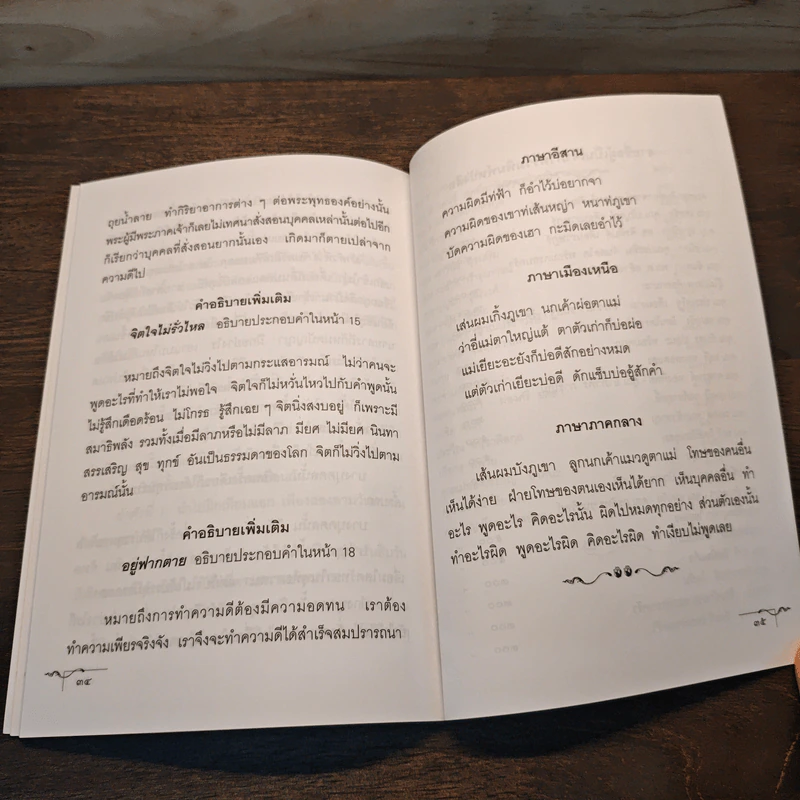 ถุยน้ำลาย ทำกิริยาอาการต่าง ๆ ต่อพระพุทธองค์อย่างนั้น
พระผู้มีพระภาคเจ้าก็เลยไม่เทศนาสั่งสอนบุคคลเหล่านั้นต่อไปอีก
ก็เรียกว่าบุคคลที่สั่งสอนยากนั้นเอง เกิดมาก็ตายเปล่าจาก
ความดีไป
คำอธิบายเพิ่มเติม
จิตใจไม่รั่วไหล อธิบายประกอบคำในหน้า 15
หมายถึงจิตใจไม่วิ่งไปตามกระแสอารมณ์ ไม่ว่าคนจะ
พูดอะไรที่ทำให้เราไม่พอใจ จิตใจก็ไม่หวั่นไหวไปกับคำพูดนั้น
ไม่รู้สึกเดือดร้อน ไม่โกรธ รู้สึกเฉย ๆ จิตนิ่งสงบอยู่ ก็เพราะมี
สมาธิพลัง รวมทั้งเมื่อมีลาภหรือไม่มีลาภ มียศ ไม่มียศ นินทา
สรรเสริญ สุข ทุกข์ อันเป็นธรรมดาของโลก จิตก็ไม่วิ่งไปตาม
อารมณ์นั้น
คำอธิบายเพิ่มเติม
อยู่ฟากตาย อธิบายประกอบคำในหน้า 18
หมายถึงการทำความดีต้องมีความอดทน เราต้อง
ทำความเพียรจริงจัง เราจึงจะทำความดีได้สำเร็จสมปรารถนา
๓๔
ภาษาอีสาน
ความผิดมีท่ฟ้า ก็อำไว้บ่อยากจา
ความผิดของเขาท่เส้นหญ้า หนาท่ภูเขา
บัดความผิดของเฮา กะมิดเลยอำไว้
ภาษาเมืองเหนือ
เส่นผมเกิ้งภูเขา นกเค้าผ่อตาแม่
ว่าอี่แม่ตาใหญ่แต้ ตาตัวเก่าก็บ่อผ่อ
แม่เยียะอะยังก็บ่อดีสักอย่างหมด
แต่ตัวเก่าเยียะบ่อดี ดักแซ็บบ่ออู้สักคำ
ภาษาภาคกลาง
เส้นผมบังภูเขา ลูกนกเค้าแมวดูตาแม่ โทษของคนอื่น
เห็นได้ง่าย ฝ่ายโทษของตนเองเห็นได้ยาก เห็นบุคคลอื่น ทำ
อะไร พูดอะไร คิดอะไรนั้น ผิดไปหมดทุกอย่าง ส่วนตัวเองนั้น
ทำอะไรผิด พูดอะไรผิด คิดอะไรผิด ทำเงียบไม่พูดเลย
๓๕